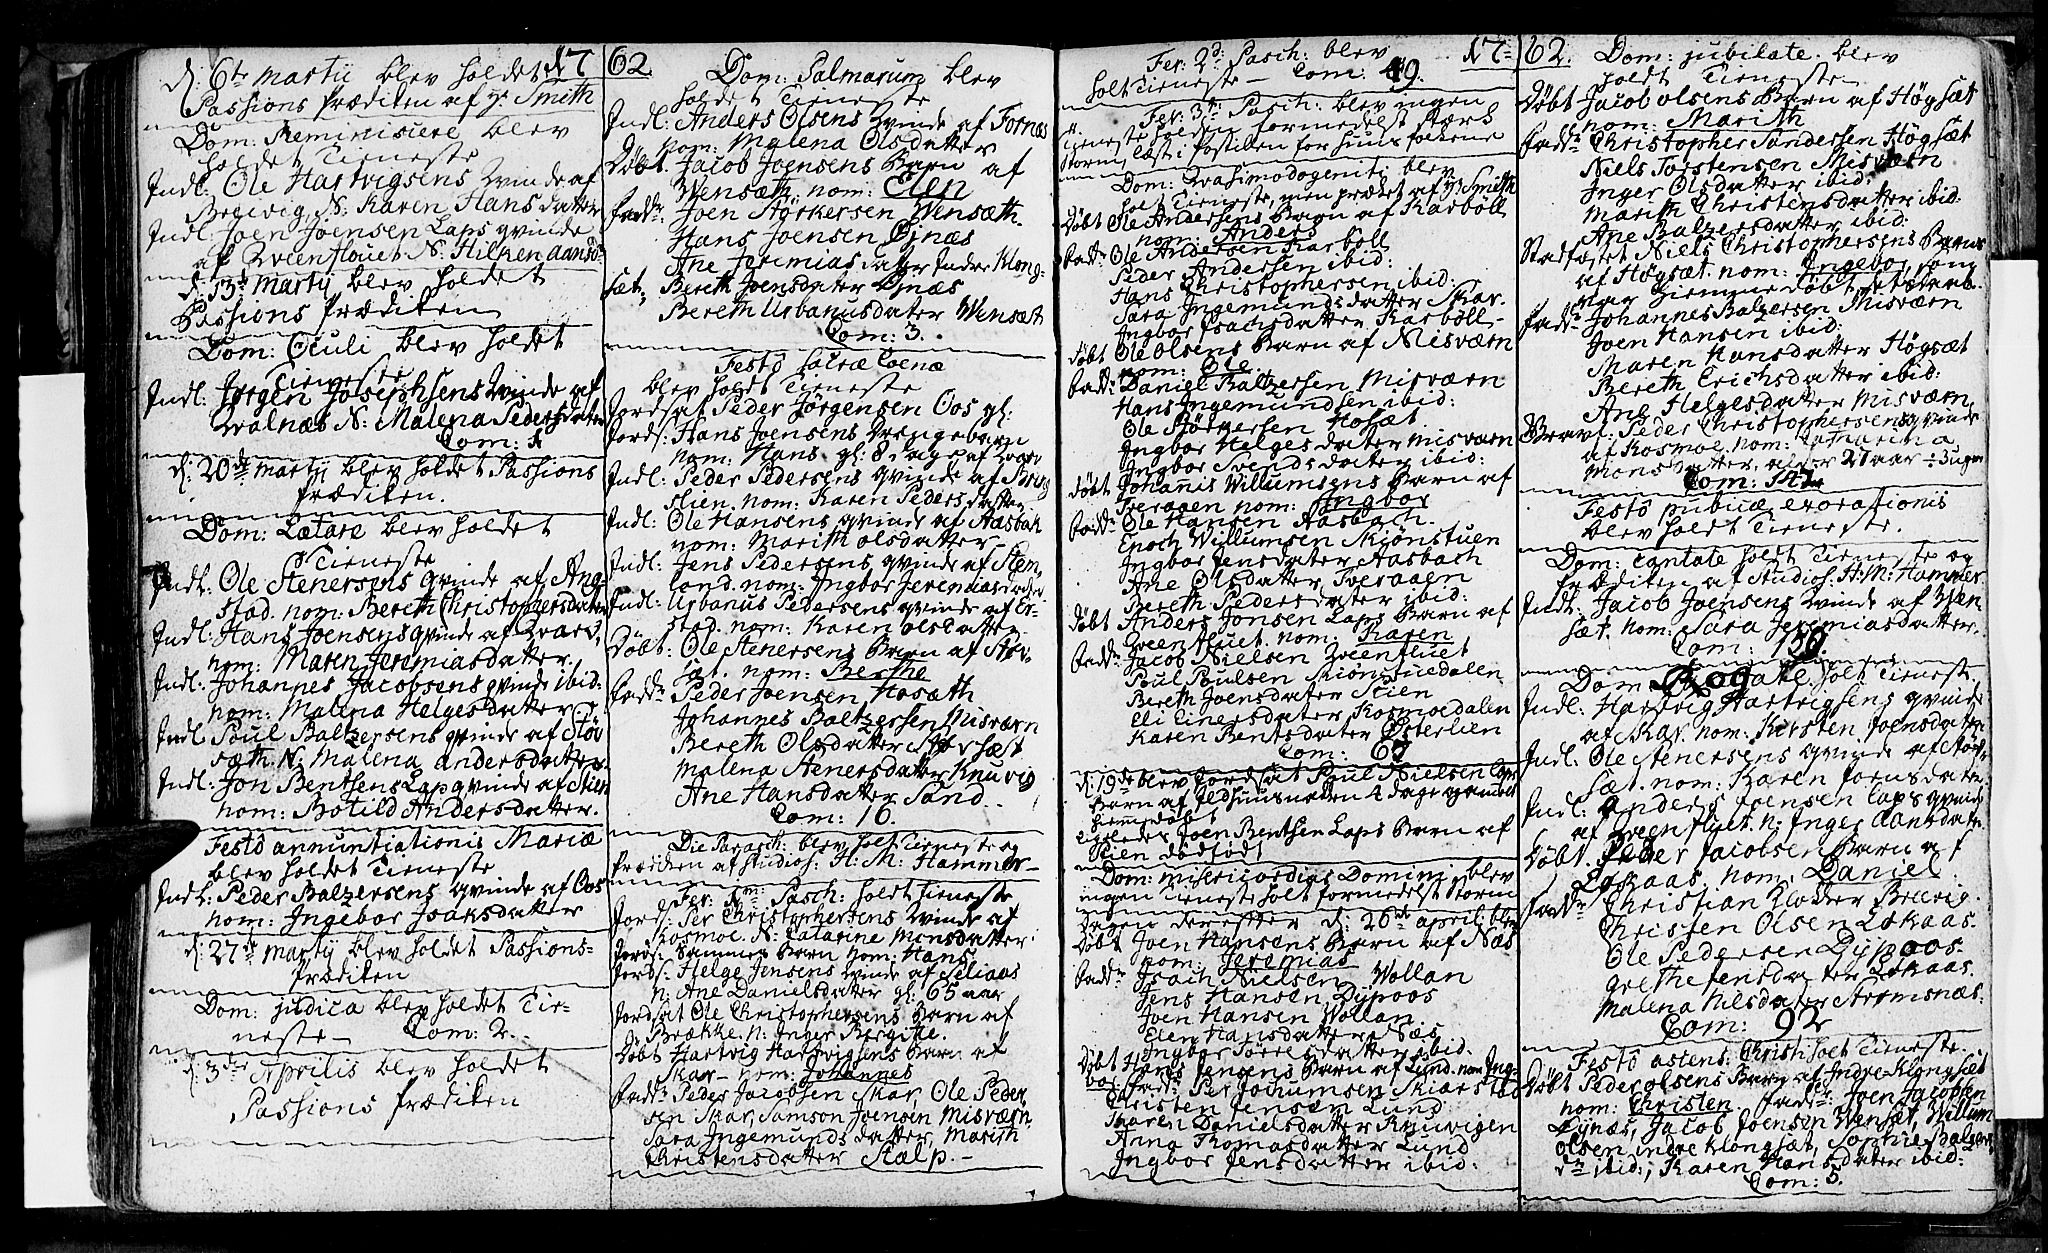 17 62
d: 6te martij blev holdet
Passions Prædiken af hr Smith
Dom: Reminiscere blev
holdet Tieneste
Indl: Ole Hartvigsens Qvinde af
Breivig N: Karen Hans datter
Indl: Joen Joensens Laps qvinde
af Qveenflouet N: Hilken
d: 13de martij blev holdet
Passions Prædiken
Dom: Oculi blev holdet
Tieneste
Indl: Jørgen Josephsens Qvinde af
Qvalnæs N: Malena Pedersdatter
Com: 1
d: 20de martij blev holdet Passions
Prædiken.
Dom: Lætare blev holdet
Tieneste
Indl: Ole Stenersens qvinde af Ang-
stad. nom: Bereth Christophersdatter
Indl: Hans Joensens qvinde af
nom: Maren Jeremiasdatter.
Indl: Johannes Jacobsens qvinde ibid:
nom: Malena Helgesdatter
Indl Poul Baltzersens qvinde af Støv
sæth. N: Malena Andersdatter
Indl: Jon Benthsens Lap qvinde af Stien
nom: Botild Andersdatter.
Festo annuntiationis Mariæ
blev holdet Tieneste
Indl: Peder Balzersens qvinde af Oos
nom: Ingebor Isaksdatter
d: 27de martij blev holdet Passions-
Prædiken
Dom: judica blev holdet Tie-
neste — Com: 2.
d: 3die Aprilis blev holdet
Passions Prædiken
Dom: Palmarum blev
holdet Tieneste
Indl: Anders Olsens Qvinde af Fornæs
nom: Malena Olsdatter
Døbt Jacob Joensens Barn af
Wensæth nom: Elen
Fadde: Joen Størkersen Wensæth
Hans Joensen Øjnæs
Ane Jeremias datter Indre Klong-
sæt; Bereth Joensdater Øjnæs
Bereth Urbanusdater Wensæt
Com: 3.
Festo Sacræ Coenæ
blev holdt Tieneste
Jordsat Peder Jørgensen Oos gl:
Jords: Hans Joensens drengebarn
nom: Hans. gl: 8 dage af
Indl: Peder Pedersens qvinde af Bring
slien. nom: Karen Peders datter
Indl: Ole Hansens qvinde af Aasbak
nom: Marith olsdatter
Indl: Jens Pedersens qvinde af Sten
land. nom: Ingbor Jeremiasdatter
Indl: Urbanus Pedersens qvinde af Er-
stad. nom: Karen olsdatter
Døbt: Ole Stenersens Barn af Støv-
sæt. nom: Berthe
Fadde: Peder Joensen Hosæth
Johannes Baltzersen Misværn
Bereth Olsdatter Støvsæt
Malena Stenersdatter Knuvig
Ane Hansdatter Sand.
Com: 10.
Die Parasch: blev holt Tieneste og
Prædiken af Studios: H: M: Hammer
Fer: 1me Pasch: holdt Tieneste
Jords: Per Christophersens Qvinde af
Kosmoe. N: Catarine Monsdatter
Jords: Sammes Barn nom: Hans
Jords: Helge Jensens Qvinde af Seliaas
n: Ane Danielsdatter gl: 65 aar
Jordsat Ole Christophersens Barn af
Brække. n: Inger Bergitte.
Døbt Hartvig Hartvigsens Barn af
Skar — nom: Johannes
Fadde: Peder Jacobsen Skar, Ole Peder
sen Skar, Samson Joensen Misværn
Sara Ingemunds datter, Marith
Christensdatter Stølp. —
17 62.
Fer: 2d: Pasch: blev
holt Tieneste — Com: 49.
Fer: 3te Pasch: blev ingen
tieneste holden formedelst stærk
storm, læst i Postillen for huus folkene
Dom: Qvasimodogeniti blev
holt Tieneste, men prædiket af hr Smith
Døbt Ole Andersens Barn af Karbøll
nom: Anders
Fadde: Ole Andersen Karbøll
Peder Andersen ibid:
Hans Christophersen ibid:
Sara Ingemunds datter Skar.
Ingbor Isachsdatter Karbøll
døbt Ole Olsens Barn af Misværn
nom: Ole.
Fadde: Daniel Baltzersen Misværn
Hans Ingemundsen ibid:
Ole Størkersen Hosæt
Ingbor Helges datter Misværn
Ingbor Svends datter ibid:
døbt Johannis Willumsens Barn af
Tveraaen nom: Ingbor
Fadde: Ole Hansen Aasbach.
Enoch Willumsen Skiønstuen
Ingbor Jensdatter Aasbach
Ane Olsdatter Tveraaen
Bereth Pedersdatter ibid:
døbt Anders Jonsen Laps Barn af
Qveenfluet. nom: Karen
Fadde: Jacob Nielsen Qveenfluet
Poul Poulsen Skiønstuedalen
Bereth Joensdatter Stien
Eli Einersdatter Kosmoedalen
Karen Bentsdatter Østerlien
Com: 60
d: 19de blev Jordsat Poul Nielsen Laps
Barn af 4 dage gammel
hiemedøbt
ligeledes Joen Bentsen Laps Barn af
Stien dødfødt
Dom: Misericordias Domini blev
ingen Tieneste holt formedelst Storm
Dagen derefter d: 26de april: blev
Døbt Joen Hansens Barn af Næs
nom: Jeremias
Fadde: Isach Nielsen Wollan
Jens Hansen Dypoos
Joen Hansen Wollan
Elen Hansdatter Næs
Ingbor Tørresdatter ibid.
Døbt Hans Jensens Barn af Lund. nom: Ing-
bor Fadde: Per Jochumsen Skiarstad
Christen Jensen Lund
Maren Danielsdatter Knuvigen
Anna Thomasdatter Lund
Ingbor Jensdatter ibid:
Dom: jubilate. blev
holdt Tieneste
Døbt Jacob Olsens Barn af Høgsæt
nom: Marith
Fadde: Christopher Sandersen Høgsæt
Niels Torstensen Misværn
Inger Olsdatter ibid:
Marith Christensdatter ibid:
Ane Balzersdatter ibid:
Stadfæstet Niels Christophersens Barns
af Høgsæt nom: Ingebor, som
var hiemmedøbt, dets daab.
Fadde: Johannes Balzersen Misværn
Joen Hansen ibid:
Maren Hansdatter Høgsæt
Bereth Erichsdatter ibid:
Ane Helgesdatter Misværn
Gravf: Peder Christophersens qvinde
af Kosmoe. nom: Catharina
Monsdatter, alder 27 aar ÷ 3 uger
Com: 142
Festo publicæ exorationis
blev holdt Tieneste.
Dom: Cantate holdt Tieneste og
Prædiken af Studios: H: M: Hammer
Indl: Jacob Joensens Qvinde af Wen
sæt. nom: Sara Jeremiasdatter.
Com: 130.
Dom Rogate. holt Tieneste.
Indl: Hartvig Hartvigsens qvinde
af Skar. nom: Kirsten Joensdatter
Indl: Ole Stenersens qvinde af Støv-
sæt. nom: Karen Jonsdatter
Indl: Anders Joensen Laps qvinde
af Qveenfluet. n: Inger Aansdatter
Døbt. Peder Jacobsen Barn af
Løkaas nom: Daniel
Fadde: Christian Klocker Breivig.
Christen Olsen Løkaas.
Ole Pedersen Dypoos.
Grethe Jensdatter Løkaas.
Malena Nilsdatter Strømsnæs.
Com: 92
Festo ascens: Christi holt Tieneste.
Døbt Peder olsens Barn af Indre Klongsæt
nom: Christen Fadde: Joen Jacobsen
Øynæs, Jacob Joensen Wensæt, Willum
Olsen indre Klongsæt, Sophie Balzers
dr ibid:, Karen Hansdatter ibid:
Com: 5.